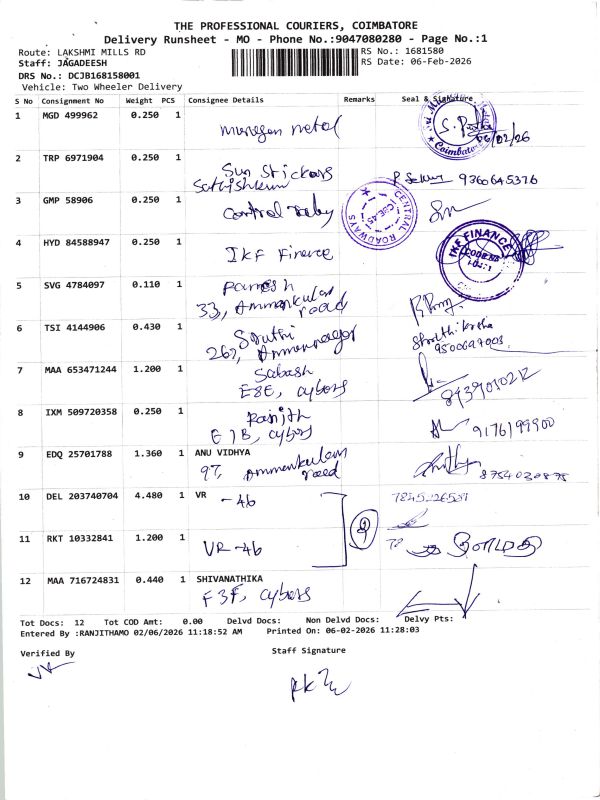 THE PROFESSIONAL COURIERS, COIMBATORE
Delivery Runsheet - MO - Phone No.:9047080280 - Page No.:1
Route: LAKSHMI MILLS RD
Staff: JAGADEESH
RS No.: 1681580
RS Date: 06-Feb-2026
DRS No.: DCJB168158001
Vehicle: Two Wheeler Delivery
S No Consignment No Weight PCS Consignee Details Remarks Seal & Signature
1 MGD 499962 0.250 1 murugan metal S.P 06/02/26
Coimbatore
2 TRP 6971904 0.250 1 Sun Stickers
Sathishkum P Selvam 9360645376
3 GMP 58906 0.250 1 Control relay
CENTRAL ROADWAYS
CBE-45
4 HYD 84588947 0.250 1 IKF Finance
IKF FINANCE
5 SVG 4784097 0.110 1 Parmesh
33, Ammankulam road
6 TSI 4144906 0.430 1 Sruthi
267, Ammannagar
7 MAA 653471244 1.200 1 Sabash
E8E, cybers 8939010212
8 IXM 509720358 0.250 1 Ranjith
E1B, cybers 9176199900
9 EDQ 25701788 1.360 1 ANU VIDHYA
97, Ammankulam road 8754030875
10 DEL 203740704 4.480 1 VR
-46
11 RKT 10332841 1.200 1
VR-46
12 MAA 716724831 0.440 1 SHIVANATHIKA
F3F, cybers
Tot Docs: 12 Tot COD Amt: 0.00 Delvd Docs: Non Delvd Docs: Delvy Pts:
Entered By :RANJITHAMO 02/06/2026 11:18:52 AM Printed On: 06-02-2026 11:28:03
Verified By
Staff Signature